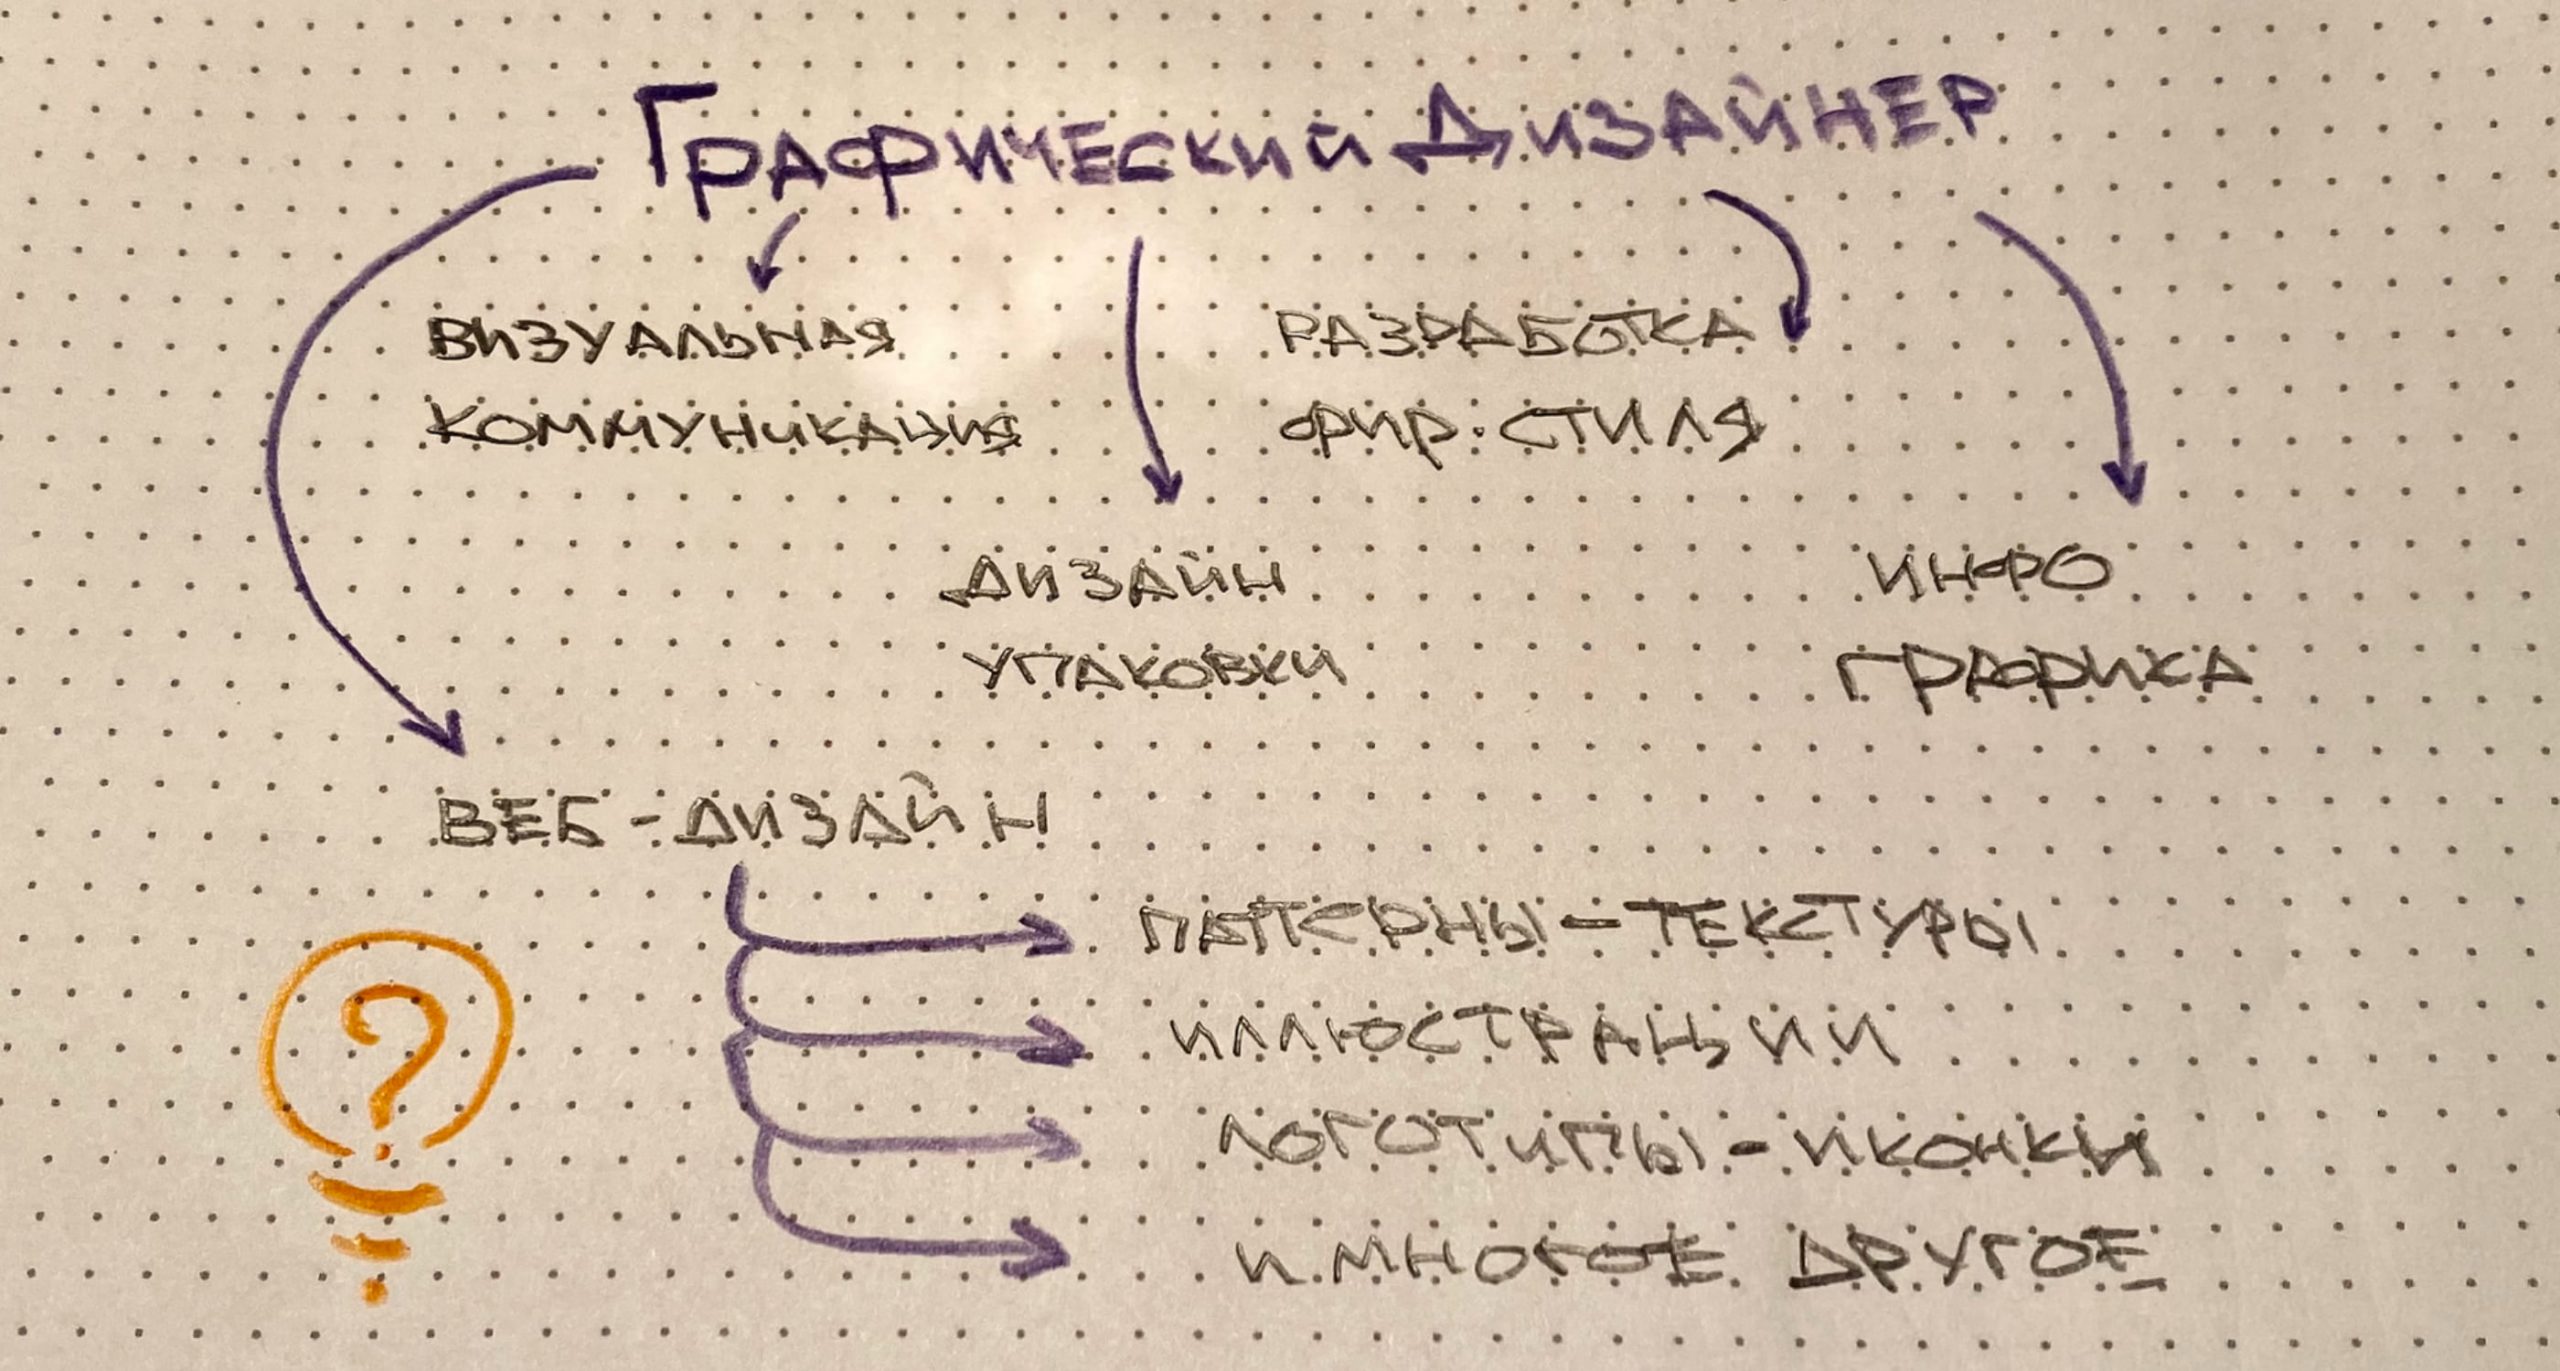 Графический Дизайнер
ВИЗУАЛЬНАЯ
КОММУНИКАЦИЯ
РАЗРАБОТКА
ФИР. СТИЛЯ
ДИЗАЙН
УПАКОВКИ
ИНФО
ГРАФИКА
ВЕБ - ДИЗАЙН
ПАТЕРНЫ - ТЕКСТУРЫ
ИЛЛЮСТРАЦИИ
ЛОГОТИПЫ - ИКОНКИ
И МНОГОЕ ДРУГОЕ
?